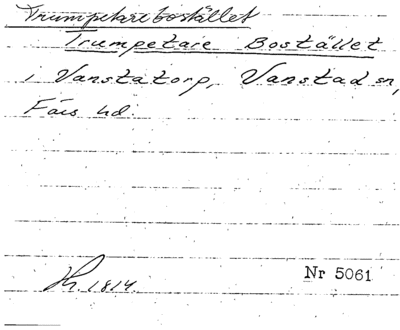 Trumpetarebostället
Trumpetare Bostället
i Vanstatorp, Vanstad sn,
Färs hd.
Nr 5061
1814.